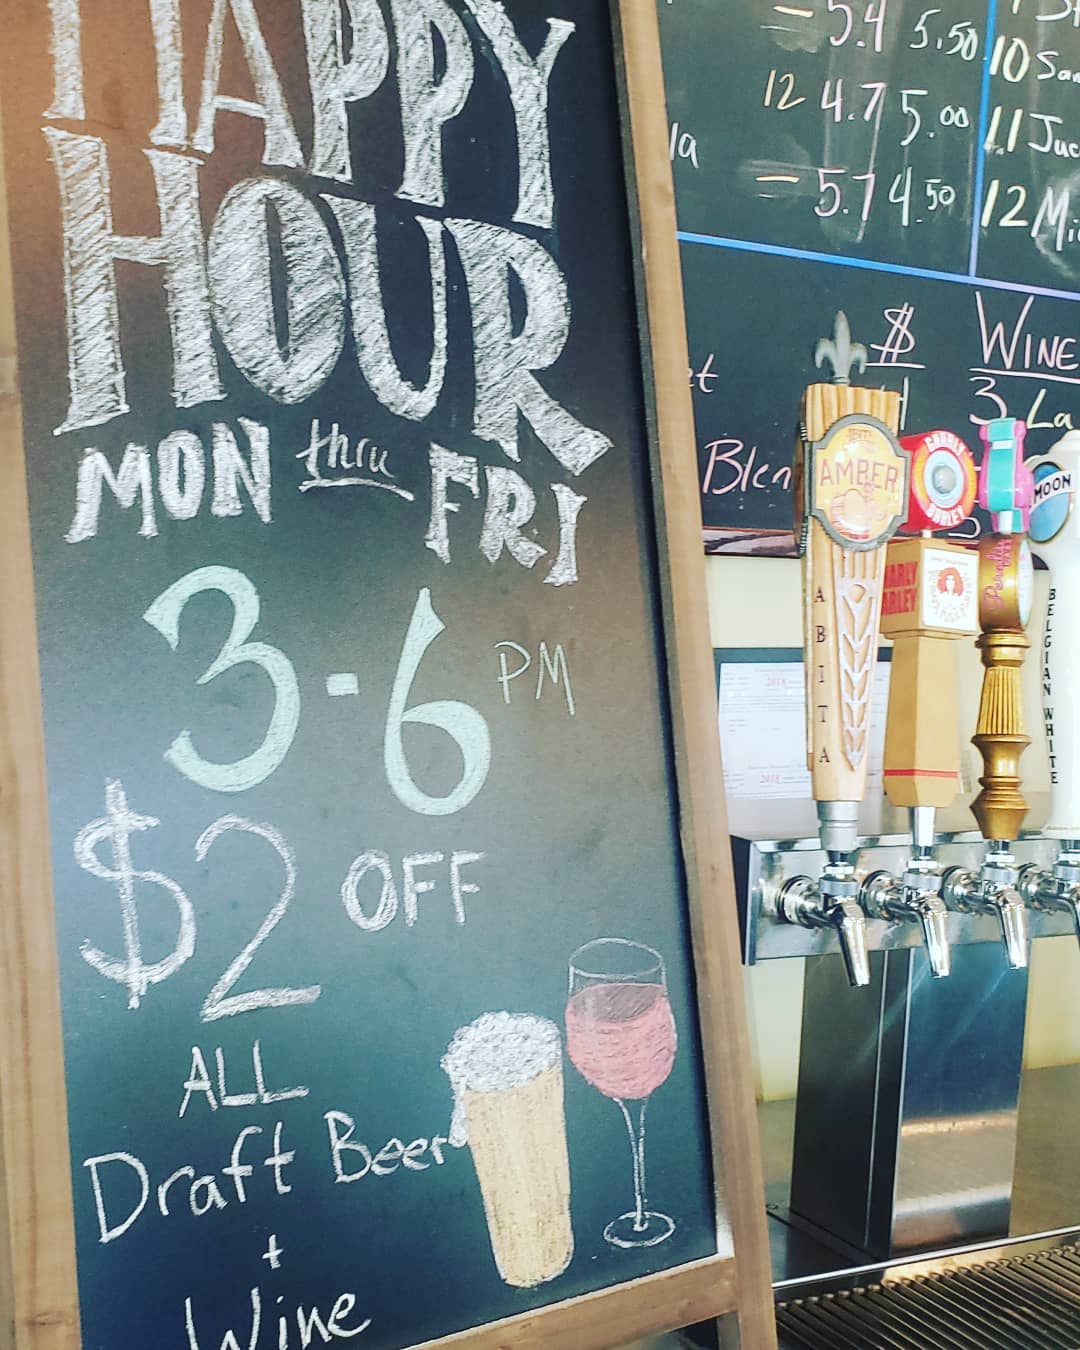 HAPPY
HOUR
MON thru FRI
3-6 PM
$2 OFF
ALL
Draft Beer
+
Wine
- 5.4 5.50
12 4.7 5.00
- 5.7 4.50
10
11
12
$
WINE
3 La
AMBER
ABITA
GNARLY
BARLEY
MOON
BELGIAN WHITE
2018
2018